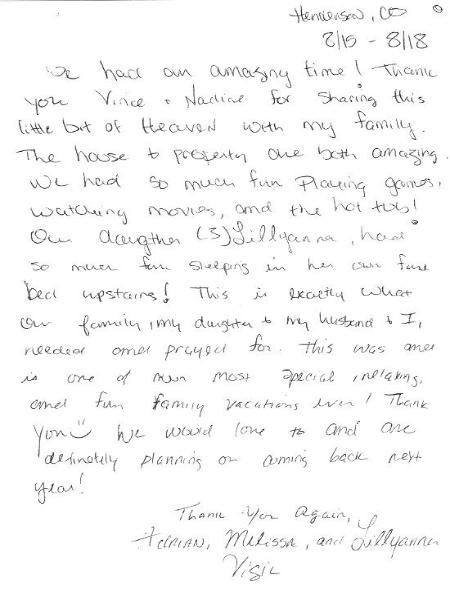 Henderson, CO
8/15 - 8/18
We had an amazing time! Thank
you Vince + Nadine for sharing this
little bit of Heaven with my family.
The house & property are both amazing.
We had so much fun playing games,
watching movies, and the hot tub!
Our daugther (3) Lillyanna, had
so much fun sleeping in her own
bed upstairs! This is exactly what
our family, my daughter & my husband & I,
needed and prayed for. This was and
is one of most special, relaxing,
and fun family vacations ever! Thank
you We would love to and are
definetely planning on coming back next
year!
Thank You Again,
Adrian, Melissa, and Lillyanna
Vigil